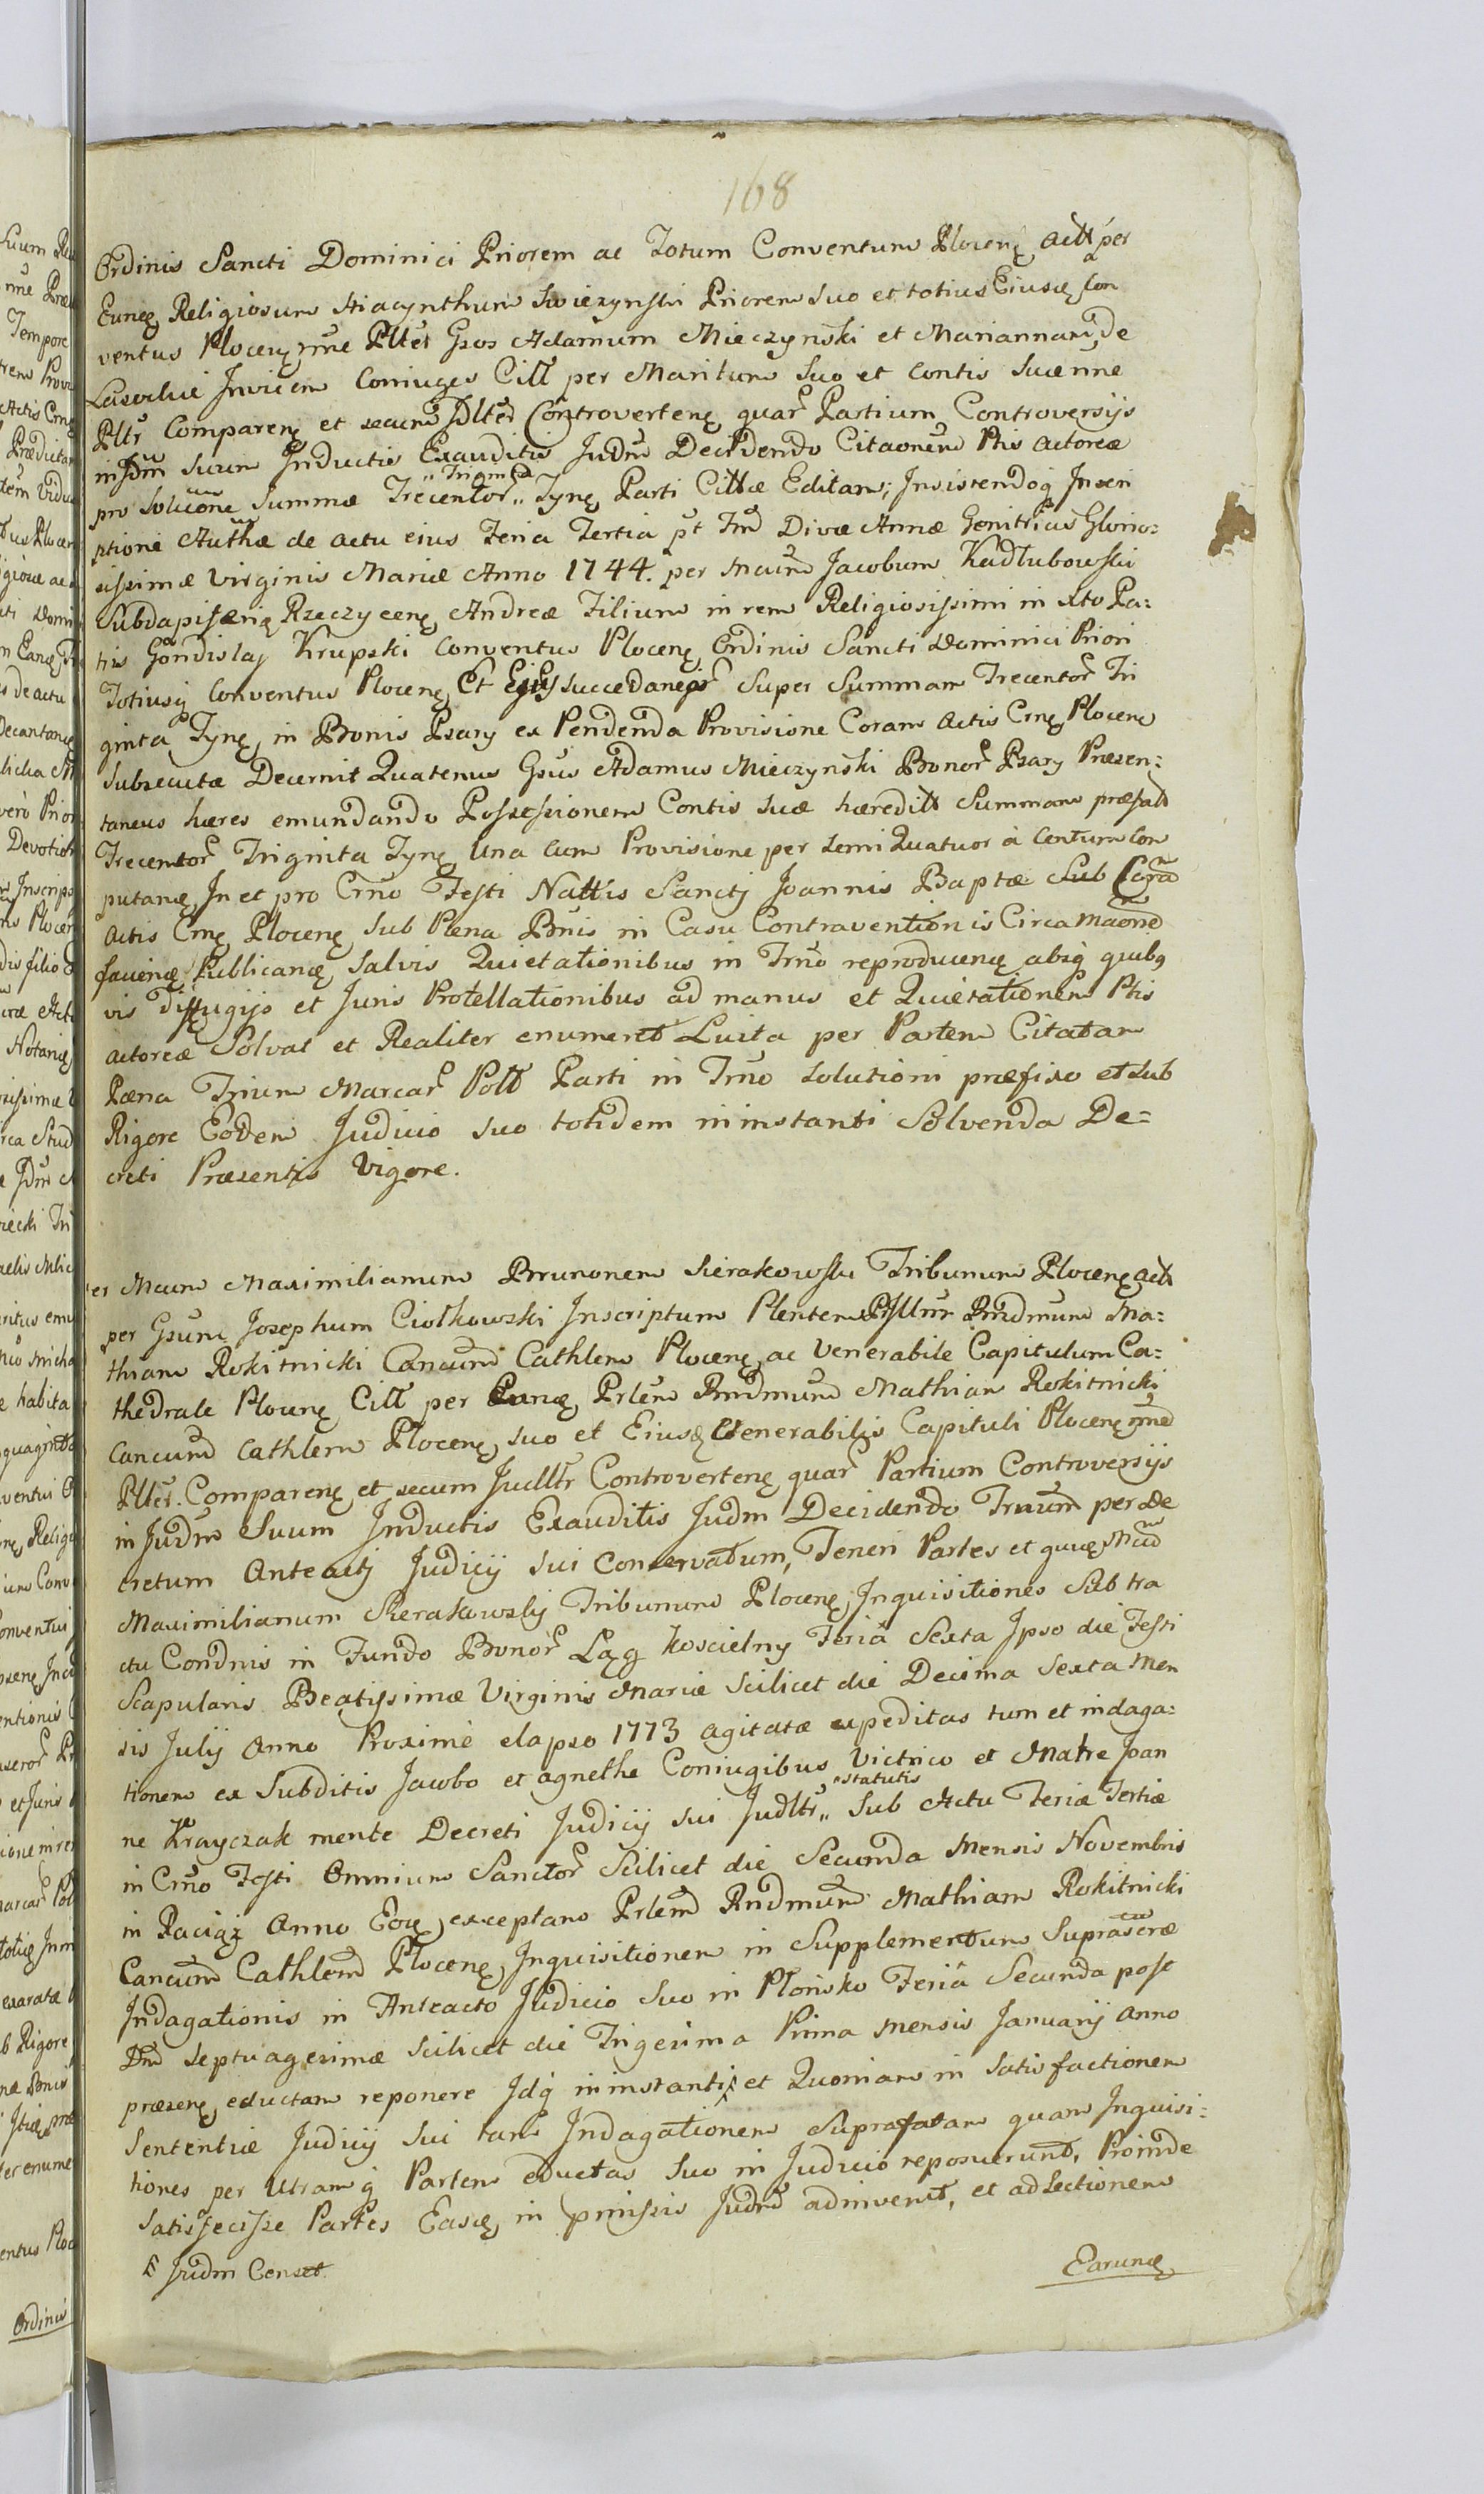 168
Ordinis Sancti Dominici Priorem ac Totum Conventum Plocen̄ Actt per
Eund Religiosum Hiacynthum Swiezynski Priorem suo et totius Eiusd Con
ventus Plocen̄ nn̄e Pltēr Gsos Adamum Mieczynski et Mariannam de
Lasockie Invicem Coniuges Citt per Maritum suo et Contis suae nn̄e
Pltr Comparen̄ et secum Jdltēr Controverten̄ quar Partium Controversijs
in Jdm̄ suum Inductis Exauditis Judm Decidendo Citaonem Ptis Actoreæ
pro soluōne Summæ Trecentor „Triginta„ Tyn̄ Parti Cittæ Editam; Insistendoq Inscri
ptioni Auth̄æ de actu eius Feria Tertia pt Fm̄ Divæ Annæ Genitricis Glorio:
sissimæ Virginis Mariæ Anno 1744. per Mcum̄ Jacobum Kadłubowski
Subdapiferid Rzeczycen̄ Andreæ Filium in rem Religiosissimi in Xto Pa:
tris Gondislaj Krupski Conventus Plocen̄ Ordinis Sancti Dominici Priori
Totiusq Conventus Plocen̄ Et Super Summam Trecentor Tri
ginta Tyn̄ in Bonis Psary ex Pendenda Provisione Coram Actis Crn̄ Plocen̄
subsecutæ Decernit Quatenus Gsus Adamus Mieczynski Bonor Psary Præsen:
taneus hæres emundando Possessionem Contis suæ hæreditt Summam præfatt
Trecentor Triginta Tyn̄ Una cum Provisione per semi Quatuor à Centum Com
putand In et pro Crn̄o Festi Nattis Sanctj Joannis Baptæ Sub Cora
Actis Crn̄ Plocen̄ sub Pena Bn̄is in Casu Contraventionis Circa Maōne
faciend Publicand Salvis Quietationibus in Trn̄o reproducend absq quibus
vis diffugijs et Juris Protellationibus ad manus et Quietationem Ptis
actoreæ Solvat et Realiter enumeret Luita per Partem Citatam
Pæna Trium Marcar Poltt Parti in Trn̄o solutioni præfixo et sub
Rigore Eodem Judicio suo totidem in instanti Solvenda De=
creti Præsentis Vigore.
er Mcum Maximilianum Brunonem Sierakowski Tribunum Plocen̄ Actt
per Gsum Josephum Ciołkowski Inscriptum Plentem Rndmum Ma:
thiam Rokitnicki Cancum̄ Cathlem Plocen̄ ac Venerabile Capitulum Ca:
thedrale Plocen̄ Citt per Eund Prlēm Rndmum Mathiam Rokitnicki
Cancum̄ Cathlem Plocen̄ suo et Eiusd Venerabilis Capituli Plocen̄ nn̄e
Pltēr Comparen̄ et secum Judltr Controverten̄ quar Partium Controversijs
in Judm Suum Inductis Exauditis Judm Decidendo Trnum per De
cretum Anteactj Judicij sui Conservatum, Teneri Partes et quidem Mcum
Maximilianum Sierakowskj Tribunum Plocen̄ Inquisitiones Sub tra
ctu Condnis in Fundo Bonor Łąg Koscielny Feriâ Sexta Ipso die Festi
Scapularis Beatissimæ Virginis Mariæ Scilicet die Decima Sexta Men
sis Julij Anno Proximè elapso 1773 agitatæ expeditas tum et indaga:
tionem ex Subditis Jacobo et Agnethe Coniugibus Victrico et Matre Joan
ne Krayczak mente Decreti Judicij sui Judltr „statutis„ Sub Actu Feriæ Tertiæ
in Crn̄o Festi Omnium Sanctor Scilicet die Secunda Mensis Novembris
in Raciąż Anno Eod exceptam Prlem̄ Rndmum̄ Mathiam Rokitnicki
Cancum̄ Cathlem̄ Plocen̄ Inquisitionem in Supplementum Suprascræ
Indagationis in Anteacto Judicio Suo in Płońsko Feriâ Secunda post
Dm̄ Septuagesimæ Scilicet die Trigesima Prima mensis Januarij Anno
præsen̄ eductam reponere Idq in instanti, et Quoniam in satisfactionem
Sententiæ Judicij sui tam Indagationem Suprafatam quam Inquisi:
tiones per Utramq Partem eductas suo in Judicio reposuerunt, Proinde
satisfecisse Partes Easd in præmissis Judm̄ adinvenit, et ad Lectionem
§ Judm Censet
Earund